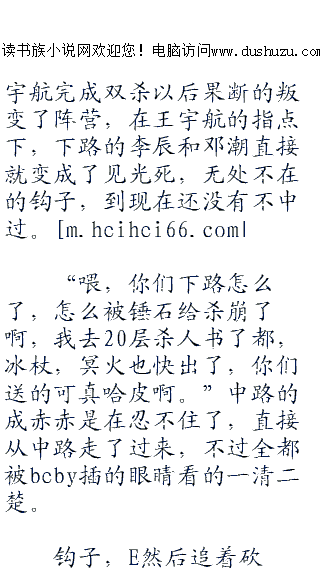 读书族小说网欢迎您！电脑访问www.dushuzu.com
宇航完成双杀以后果断的叛
变了阵营，在王宇航的指点
下，下路的李辰和邓潮直接
就变成了见光死，无处不在
的钩子，到现在还没有不中
过。[m.hcihci66.com|
“喂，你们下路怎么
了，怎么被锤石给杀崩了
啊，我去20层杀人书了都，
冰杖，冥火也快出了，你们
送的可真哈皮啊。”中路的
成赤赤是在忍不住了，直接
从中路走了过来，不过全都
被bcby插的眼睛看的一清二
楚。
钩子，E然后追着砍